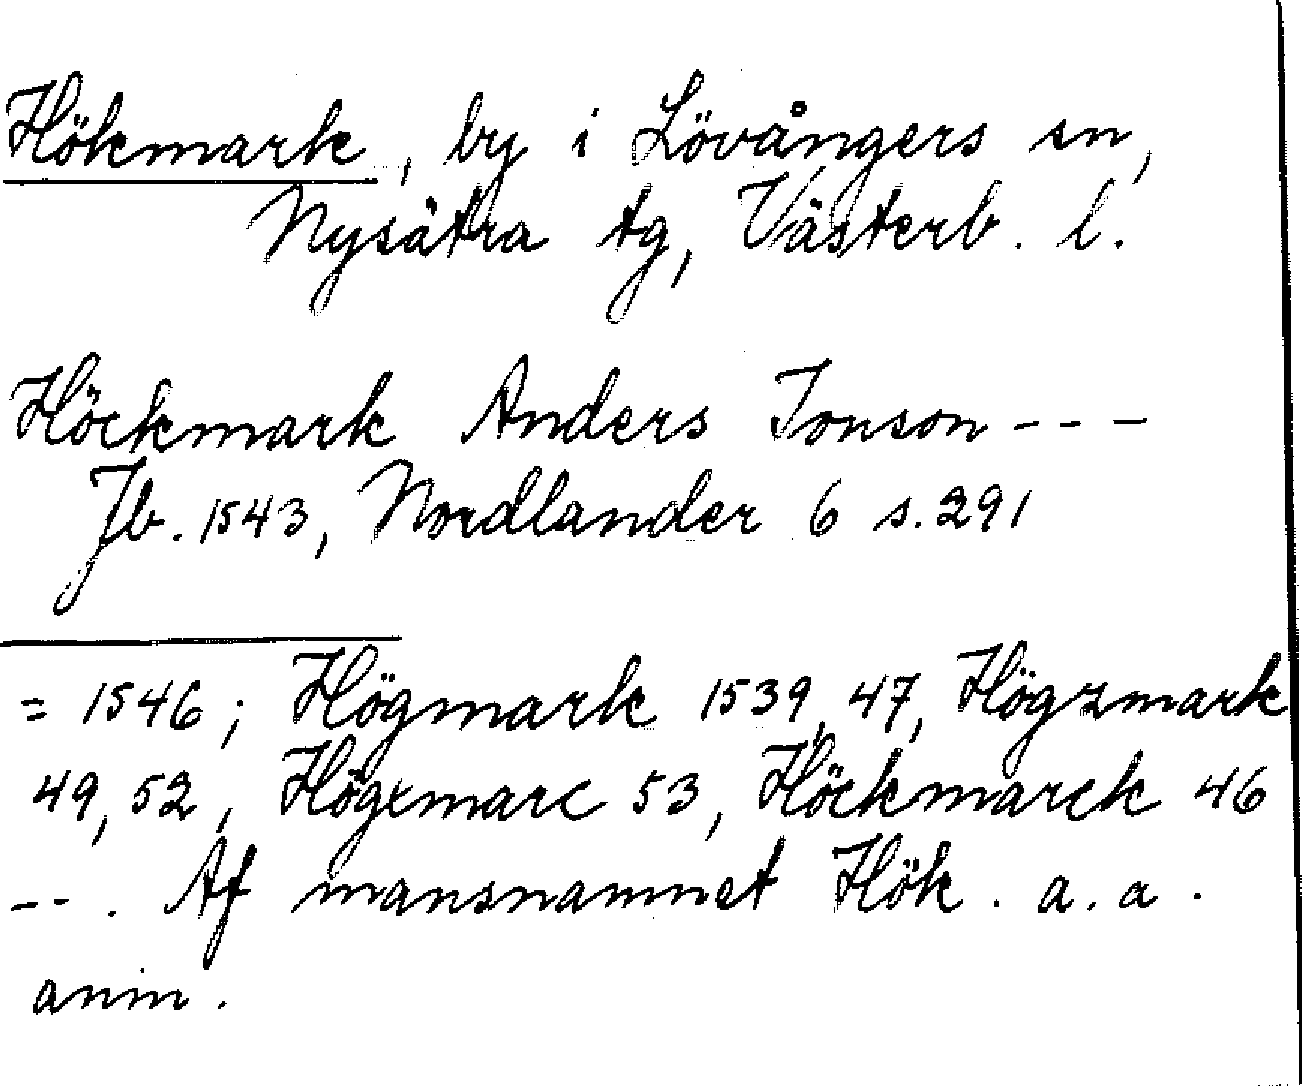 Hökmark, by i Lövångers sn,
Nysätra tg, Västerb. l.
Höckmark Anders Jonson - - -
Jb. 1543, Nordlander 6 s. 291
= 1546; Högmark 1539, 47, Högzmark
49, 52, Högxmarc 53, Höckmarck 46
- - . Af mansnamnet Hök. a. a.
anm.